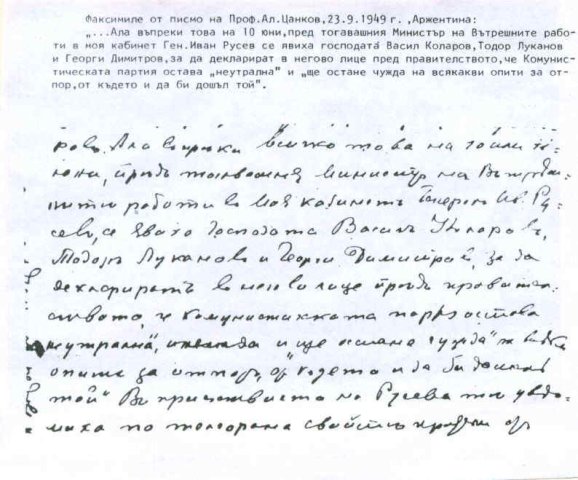 Факсимиле от писмо на Проф.Ал.Цанков,23.9.1949 г.,Аржентина:
„...Ала въпреки това на 10 юни,пред тогавашния Министър на Вътрешните рабо-
ти в моя кабинет Ген.Иван Русев се явиха господата Васил Коларов,Тодор Луканов
и Георги Димитров,за да декларират в негово лице пред правителството,че Комунис-
тическата партия остава „неутрална" и „ще остане чужда на всякакви опити за от-
пор,от където и да би дошъл той".
Ала въпреки всичко това на 10
юни, предъ тогавашния министър на Вътреш-
нитъ работи въ моя кабинетъ Генералъ Ив. Ру-
севъ, се явиха господата Василъ Коларовъ,
Тодоръ Луканов и Георги Димитров, за да
декларирать в негово лице предъ правител-
ството, че комунистическата остава
неутрална", и ще остане чужда"
опити за отпоръ, от където и да би дошълъ
той" В присъствието на Русева
по телефона